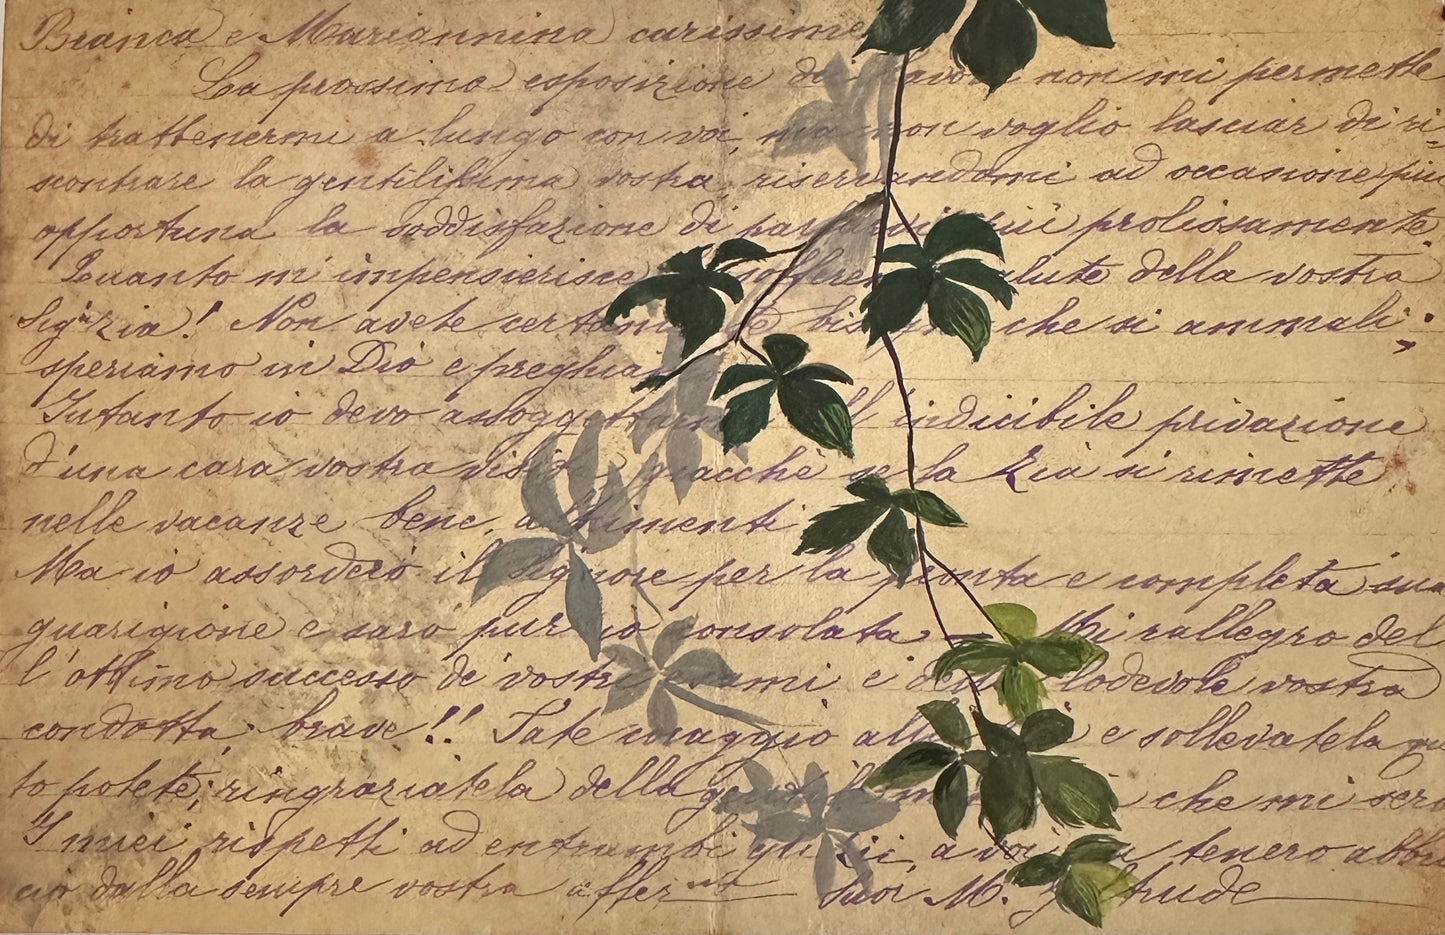 Bianca e Mariannina carissime
La prossima esposizione dei lavori non mi permette
di trattenermi a lungo con voi, ma non voglio lasciar di ri-
scontrare la gentilissima vostra riservandomi ad occasione più
opportuna la soddisfazione di più prolissamente
Quanto m'impensierisce la salute della vostra
Sig.ra Zia! Non avete certamente bisogno che si ammali;
speriamo in Dio e preghiamo
Intanto io devo assoggettarmi all'indicibile privazione
d'una cara vostra visita, giacchè se la Zia si rimette
nelle vacanze bene, altrimenti
Ma io assorderò il Signore per la pronta e completa sua
guarigione e sarò pur io consolata. Mi rallegro del
l'ottimo successo de' vostri esami e della lodevole vostra
condotta: brave!! Fate coraggio alla e sollevatela
to potete; ringraziatela della che mi
I miei rispetti ad entrambi gli zii, a voi tenero abbrac
cio dalla sempre vostra affez.ma Suor M. Geltrude